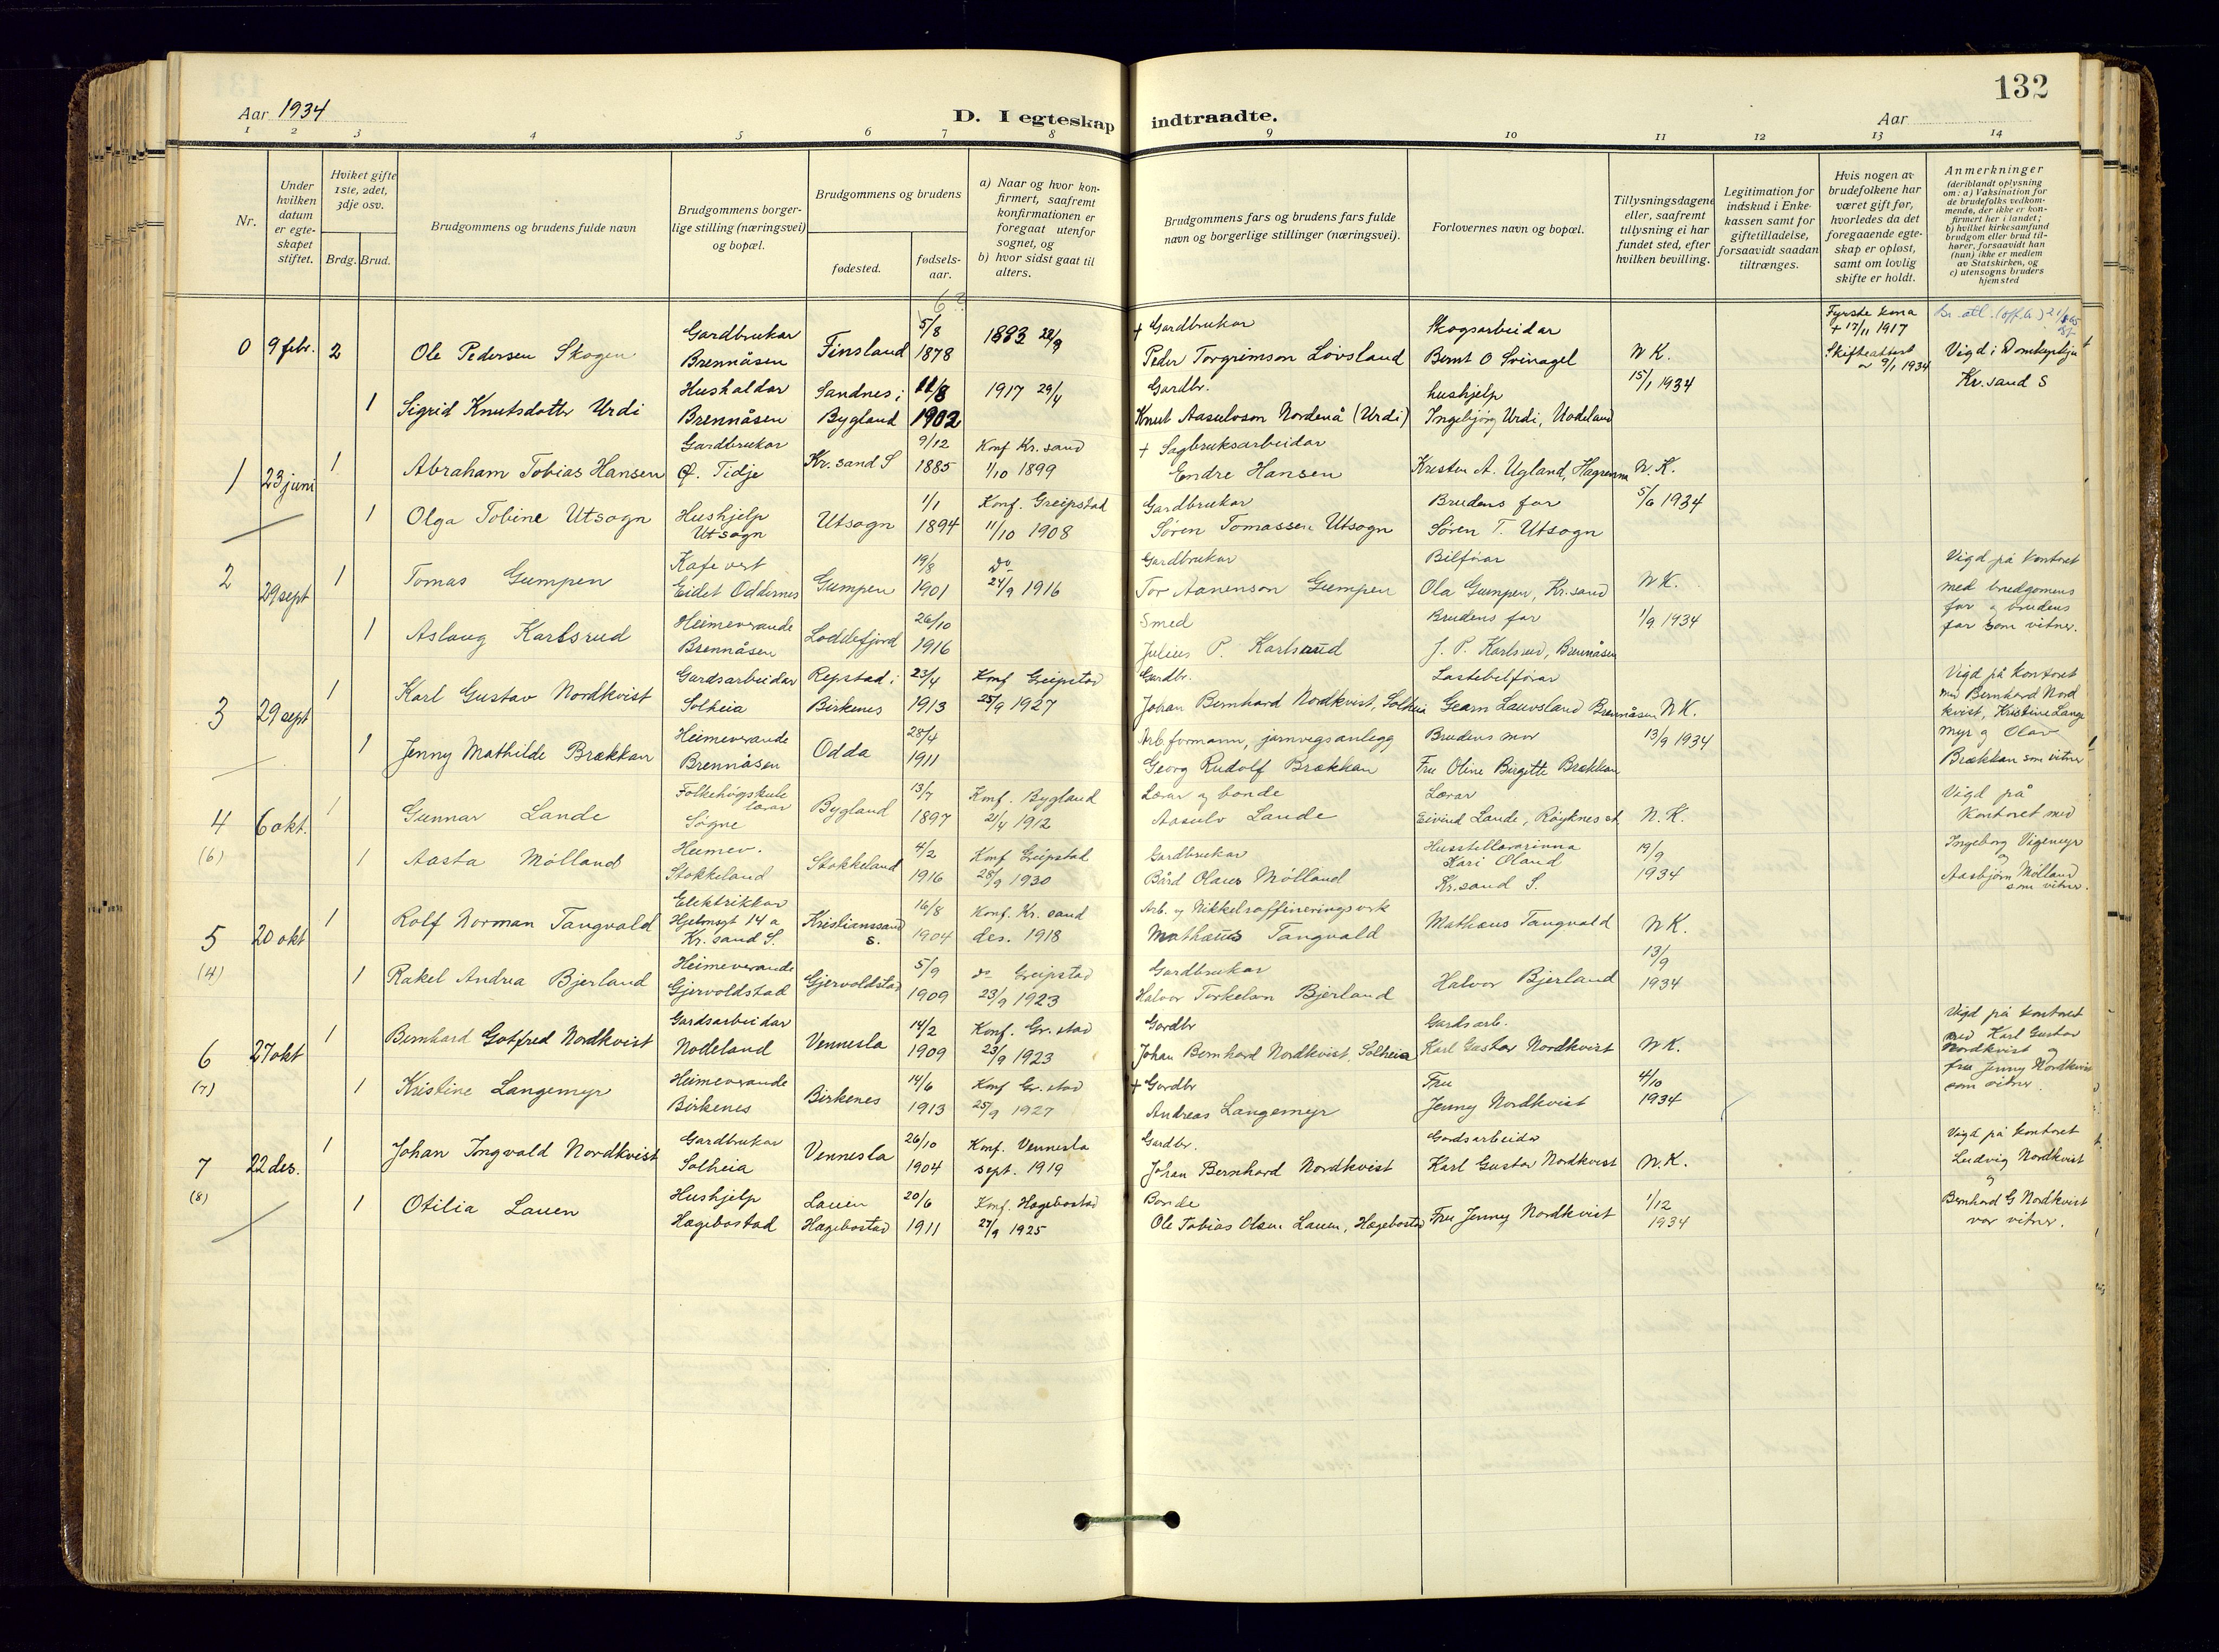 132
Aar 1934
D. I egteskap indtraadte.
Aar
1 2 3 4 5 6 7 8 9 10 11 12 13 14
Nr.
Under hvilken datum er egteskapet stiftet.
Hviket gifte 1ste, 2det, 3dje osv.
Brdg. Brud.
Brudgommens og brudens fulde navn
Brudgommens borgerlige stilling (næringsvei) og bopæl.
Brudgommens og brudens
fødested.
fødselsaar.
a) Naar og hvor konfirmert, saafremt konfirmationen er foregaat utenfor sognet, og
b) hvor sidst gaat til alters.
Brudgommens fars og brudens fars fulde navn og borgerlige stillinger (næringsvei).
Forlovernes navn og bopæl.
Tillysningsdagene eller, saafremt tillysning ei har fundet sted, efter hvilken bevilling.
Legitimation for indskud i Enkekassen samt for giftetilladelse, forsaavidt saadan tiltrænges.
Hvis nogen av brudefolkene har været gift før, hvorledes da det foregaaende egteskap er opløst, samt om lovlig skifte er holdt.
Anmerkninger
(deriblandt oplysning om: a) Vaksination for de brudefolks vedkommende, der ikke er konfirmert her i landet; b) hvilket kirkesamfund brudgom eller brud tilhører, forsaavidt han (hun) ikke er medlem av Statskirken, og c) utensogns bruders hjemsted
0 9 febr. 2 Ole Pedersen Skogen
Gardbrukar Brennåsen
Finsland
5/8 1878
1893 28/9
+ Gardbrukar
Peder Torgrimson Lövsland
Skogsarbeidar
Bernt O Svinagel
N K.
15/1 1934
Fyrste kona + 17/11 1917
Skifteattest 9/1 1934
Vigd i Domkyrkja
Kr. sand S
1 Sigrid Knutsdotter Urdi
Hushaldar Brennåsen
Sandnes i Bygland
11/8 1902
1917 29/4
Gardbr.
Knut Aasulvson Nordenå (Urdi)
hushjelp
Ingebjörg Urdi,
1 23 juni 1 Abraham Tobias Hansen
Gardbrukar Ø. Tidje
Kr. sand S
9/12 1885
Konf Kr. sand 1/10 1899
+ Sagbruksarbeidar
Endre Hansen
Kristen A. Ugland,
N. K.
5/6 1934
1 Olga Tobine Utsogn
Hushjelp Utsogn
Utsogn
1/1 1894
Konf. Greipstad 11/10 1908
Gardbrukar
Søren Tomassen Utsogn
Brudens far
Søren T. Utsogn
2 29 sept 1 Tomas Gumpen
Kafevert
Eidet Oddernes
Gumpen
19/8 1901
do 24/9 1916
Gardbrukar
Tor Aanenson Gumpen
Bilförar
Ola Gumpen, Kr. sand
N K.
1/9 1934
Vigd på kontoret
med brudgomens
far og brudens
far som vitner.
1 Aslaug Karlsrud
Heimeverande Brennåsen
Loddefjord
26/10 1916
Smed
Julius P. Karlsrud
Brudens far
J. P. Karlsrud, Brennåsen
3 29 sept 1 Karl Gustav Nordkvist
Gardsarbeidar Solheia
Repstad i Birkenes
23/4 1913
Konf Greipstad 25/9 1927
Gardbr.
Johan Bernhard Nordkvist, Solheia
Lastebilförar
Gearn Lauvsland Brennåsen
N K.
13/9 1934
Vigd på kontoret
med Bernhard Nord
kvist, Kristine Lange
myr og Olav
Brækkan som vitner
1 Jenny Mathilde Brækkan
Heimeverande Brennåsen
Odda
28/4 1911
Arb. formann, jarnvegsanlegg
Georg Rudolf Brækkan
Brudens mor
Fru Oline Birgitte Brækkan
4 (6) 6 okt. 1 Gunnar Lande
Folkehögskule lærar Søgne
Bygland
13/7 1897
Konf. Bygland 21/4 1912
Lærar og bonde
Aasulv Lande
Lærar
Eivind Lande, Röyknes st.
N. K.
19/9 1934
Vigd på
Kontoret med
Ingeborg Vigemyr
og
Aasbjörn Mölland
som vitner.
1 Aasta Mölland
Heimev. Stokkeland
Stokkeland
4/2 1916
Konf Greipstad 28/9 1930
Gardbrukar
Bård Olaus Mölland
Husstellærarinna
Kari Oland
Kr. sand S.
5 (4) 20 okt 1 Rolf Norman Tangvald
Elektrikkar
Hjelmsgt 14 a
Kr. sand S.
Kristianssand S.
16/8 1904
Konf. Kr. sand des. 1918
Arb. v Nikkelraffineringsverk
Mathæus Tangvald
Mathæus Tangvald
N K.
13/9 1934
1 Rakel Andrea Bjerland
Heimeverande Gjervoldstad
Gjervoldstad
5/9 1909
do Greipstad 23/9 1923
Gardbrukar
Halvor Torkelsen Bjerland
Halvor Bjerland
6 (7) 27 okt 1 Bernhard Gotfred Nordkvist
Gardsarbeidar Nodeland
Vennesla
14/2 1909
Konf. Gr. stad 23/9 1923
Gardbr
Johan Bernhard Nordkvist, Solheia
Gardsarb.
Karl Gustav Nordkvist
N K.
4/10 1934
Vigd på kontoret
med Karl Gustav
Nordkvist og
fru Jenny Nordkvist
som vitner.
1 Kristine Langemyr
Heimeverande Birkenes
Birkenes
14/6 1913
Konf Gr. stad 25/9 1927
+ Gardbr
Andreas Langemyr
Fru
Jenny Nordkvist
7 (8) 22 des. 1 Johan Ingvald Nordkvist
Gardbrukar Solheia
Vennesla
26/10 1904
Konf. Vennesla sept. 1919
Gardbr.
Johan Bernhard Nordkvist
Gardsarbeidar
Karl Gustav Nordkvist
N. K.
1/12 1934
Vigd på kontoret
Ludvig Nordkvist
og
Bernhard G Nordkvist
var vitner.
1 Otilia Lauen
Hushjelp Hægebostad
Lauen Hægebostad
20/6 1911
Konf. Hægebostad 27/9 1925
Bonde
Ole Tobias Olsen Lauen, Hægebostad
Fru Jenny Nordkvist